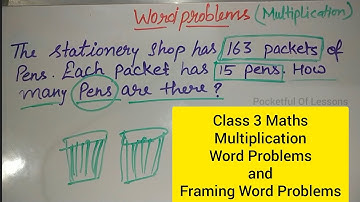 Word problems (Multiplication)
The stationery shop has 163 packets of
Pens. Each Packet has 15 pens. How
many Pens are there?
Pocketful Of Lessons
Class 3 Maths
Multiplication
Word Problems
and
Framing Word Problems